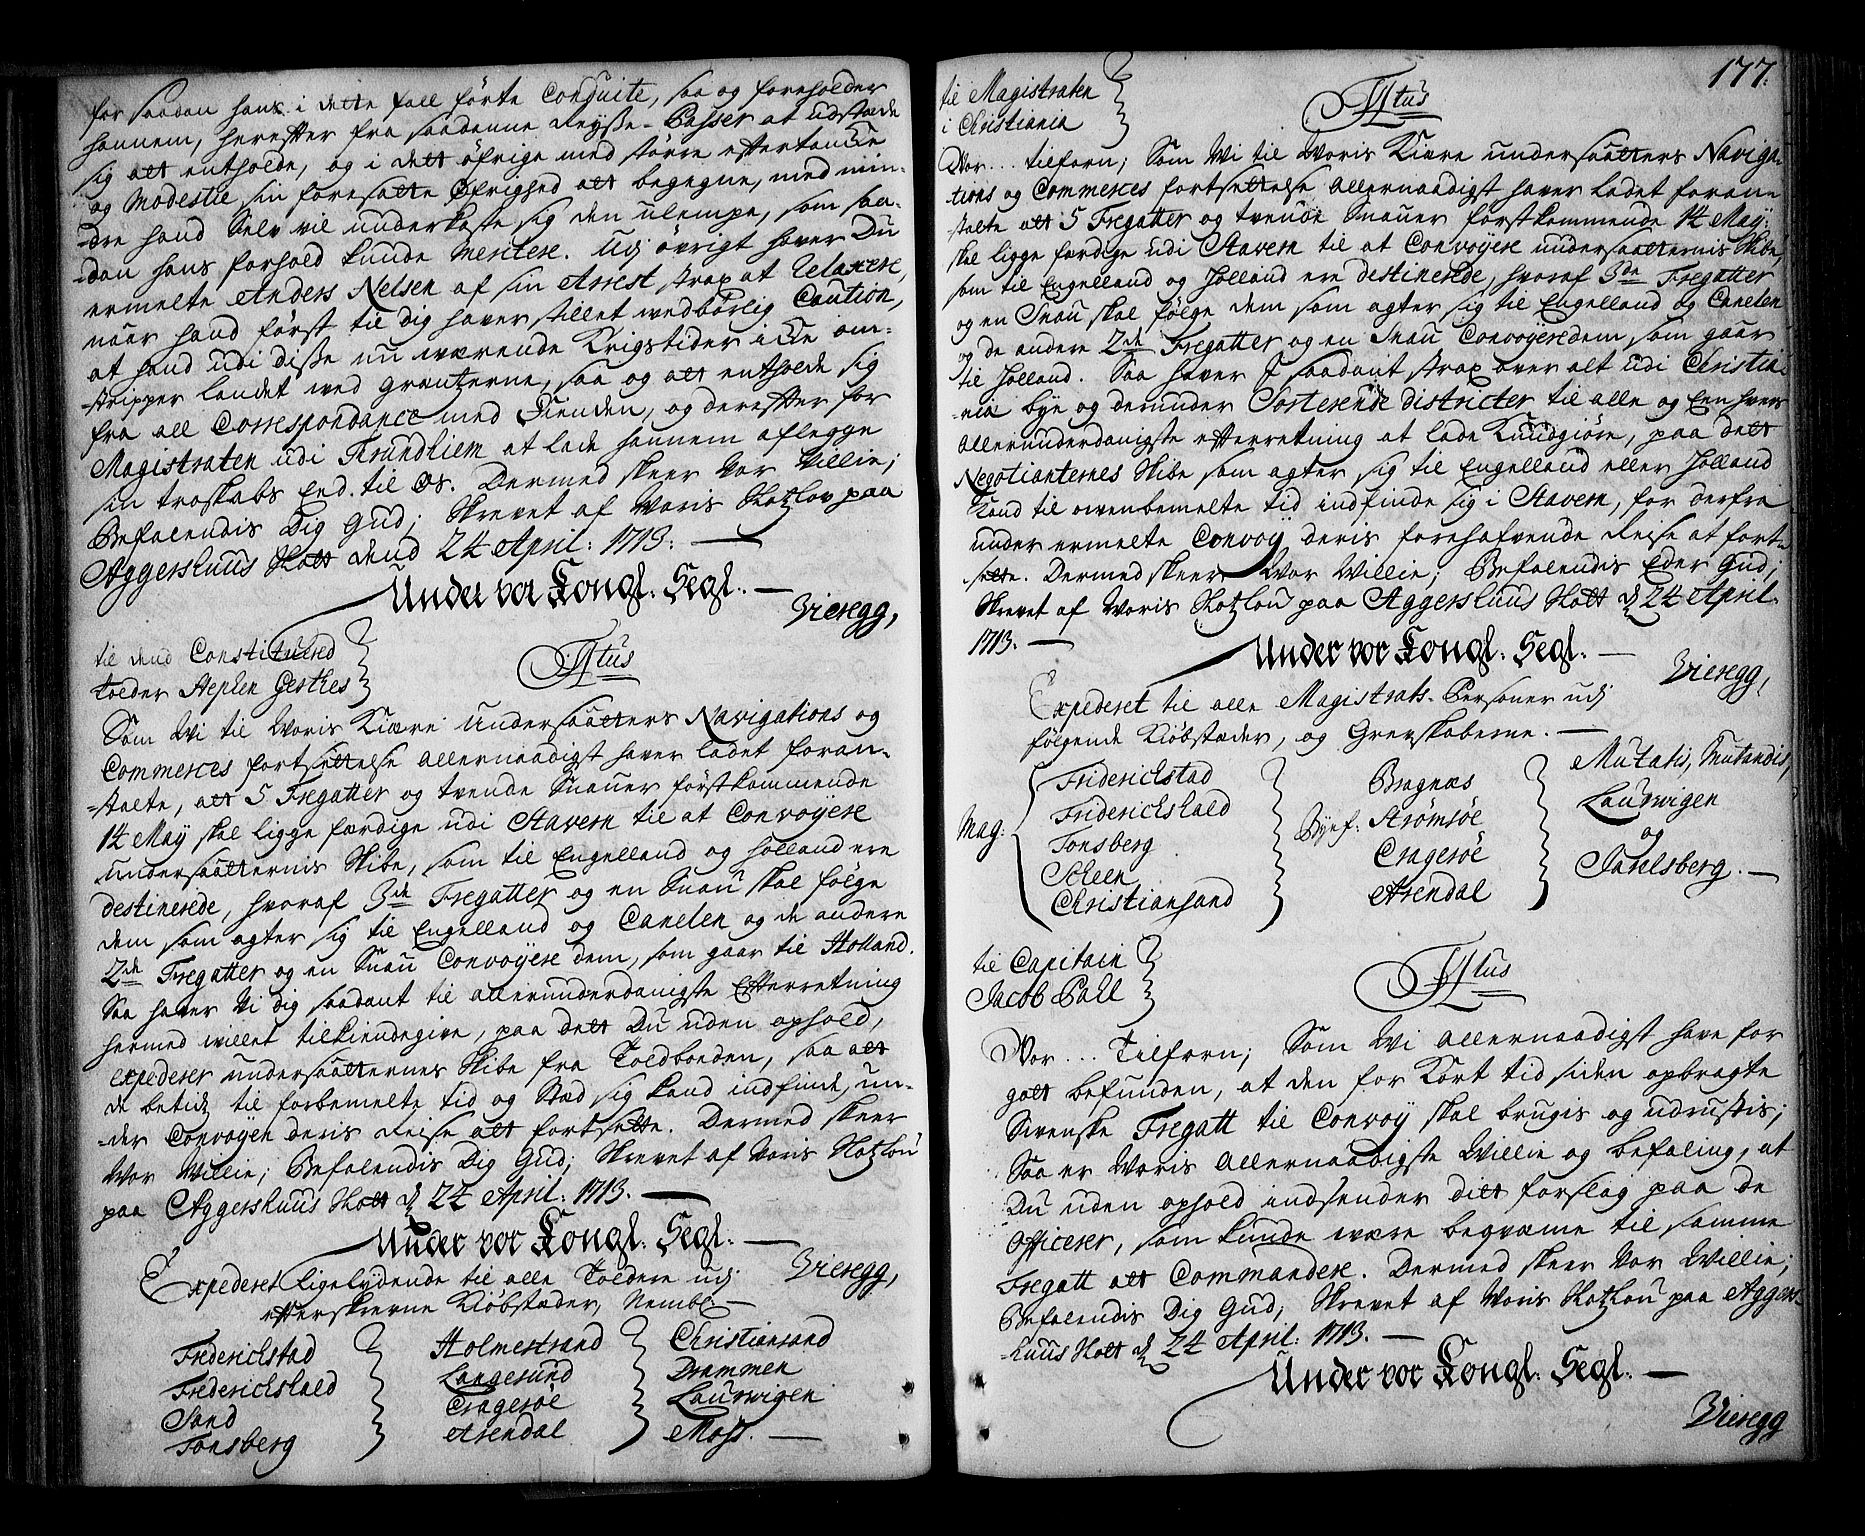 for saadan hans i dette fall førte Conduite, saa og foreholder
hannem, herefter fra saadanne Reyse-Passer at udstæde
sig alt entholde, og i dett øfrige med større eftertancke
og Modestie sin foresatte Øfrighed att begegne, med min-
-dre hand Selv vil underkaste sig den ulempe, som saa-
-dan hans forhold kunde meritere. Udj øvrigt haver Du
ermelte Anders Nelsen af sin Arrest strax at Relaxere,
naar hand først til dig haver stillet vedbørlig Caution,
at hand udi disse nu værende Krigstider icke om-
-stripper landet ved Grentzerne, saa og att entholde sig
fra all Correspondance med Fienden, og derefter for
Magistraten udi Trundhiem at lade hannem aflegge
sin troskabs Eed til os. Dermed skeer Vor Villie;
Befalendis Dig Gud; Skrevet af Voris Slotzlov paa
Aggershuus Slott dend 24 April: 1713.
Under vor Kongl. Segl.
Vieregg,
til dend Constituered
tolder Stephen Gerthes
Titus
Som Wi til Woris Kiære undersaatters Navigations og
Commerces fortsettelse allernaadigst haver ladet foran-
-stalte, att 5 Fregatter og tvende Snauer førstkommende
14 Maÿ skal ligge færdige udi Stavern til at Convoyere
undersaatternis Skibe, som til Engelland og Holland ere
destinerede, hvoraf 3de Fregatter og en Snau skal følge
dem som agter sig til Engelland og Canelen og de andere
2de Fregatter og en Snau Convoyere dem, som gaar til Holland.
Saa haver Vi dig saadant til allerunderdanigste Efterretning
hermed villet tilkiendegive, paa dett Du uden ophold,
expederer undersaatternes Skibe fra Toldboeden, saa att
de betids til forbemelte tid og Stæd sig kand indfinde, un-
-der Convoyen deris Reise att fortsette. Dermed skeer
Vor Villie; Befalendis Dig Gud; Skrevet af Voris Slotzlou
paa Aggershuus Slott d 24 April: 1713.
Under vor Kongl. Segl.
Vieregg,
Expederet ligelydende til alle Toldere udj
efterskrevne Kiøbstæder, Nembl
Friderichstad
Friderichshald
Sand
Tonsberg
Holmestrand
Langesund
Cragerøe
Arendal
Christiansand
Drammen
Laurwigen
Moss.
177.
til Magistraten
i Christiania
Titus
Vor... tilforn; Som Wi til Woris Kiære undersaatters Naviga-
tions og Commerces fortsettelse allernaadigst haver ladet foran-
stalte att 5 Fregatter og tvende Snauer førstkommende 14 Maÿ
skal ligge færdige udi Stavern til at Convoyere undersaatternis Skibe,
som til Engelland og Holland ere destinerede, hvoraf 3de Fregatter
og en Snau skal følge dem som agter sig til Engelland og Canelen
og de andere 2de Fregatter og en Snau Convoyere dem som gaar
til Holland. Saa haver I saadant strax over alt udi Christia-
-nia bye og derunder Sorterende districter til alle og Een hvers
allerunderdanigste efterretning at lade Kundgiøre, paa dett
Negotianternes Skibe som agter sig til Engelland eller Holland
kand til ovenbemelte tid indfinde sig i Stavern, for derfra
under ermelte Convoÿ deris forehafvende Reise at fort-
sette. Dermed skeer Vor Villie; Befalendis Eder Gud;
Skrevet af Woris Slotzlou paa Aggershuus Slott d 24 April.
1713.
Under vor Kongl. Segl.
Vieregg,
Expederet til alle Magistrats-Personer udj
følgende Kiøbstæder, og Grevskaberne.
Mag:
Friderichstad
Friderichshald
Tonsberg
Scheen
Christiansand
Byef:
Bragnæs
Strømsøe
Cragerøe
Arendal
Mutatis, Mutandis,
Laurwigen
og
Jarlsberg.
til Capitain
Jacob Pall
Titus
Vor... Tilforn; Som Wi allernaadigst have for
gott befunden, at den for Kort tid siden opbragte
Svenske Fregatt til Convoÿ skal brugis og udrustis;
Saa er Woris allernaadigste Villie og befaling, at
Du uden ophold indsender ditt forslag paa de
Officerer, som kunde være begvæme til samme
Fregatt att Commandere. Dermed skeer Vor Willie;
Befalendis Dig Gud; Skrevet af Voris Slotzlou paa Aggers-
-huus Slott d 24 April: 1713.
Under vor Kongl. Segl.
Vieregg